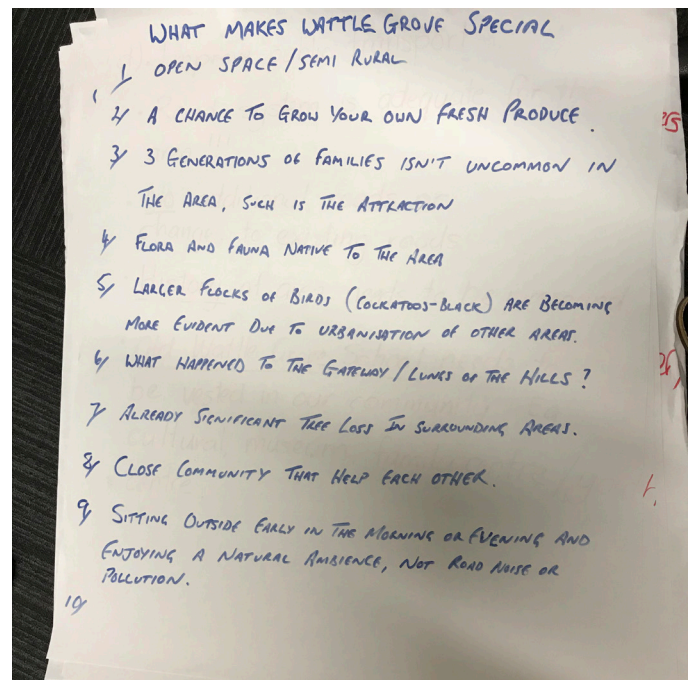 WHAT MAKES WATTLE GROVE SPECIAL
1/ OPEN SPACE / SEMI RURAL
2/ A CHANCE TO GROW YOUR OWN FRESH PRODUCE.
3/ 3 GENERATIONS OF FAMILIES ISN'T UNCOMMON IN
THE AREA, SUCH IS THE ATTRACTION
4/ FLORA AND FAUNA NATIVE TO THE AREA
5/ LARGER FLOCKS OF BIRDS (COCKATOOS-BLACK) ARE BECOMING
MORE EVIDENT DUE TO URBANISATION OF OTHER AREAS.
6/ WHAT HAPPENED TO THE GATEWAY / LUNGS OF THE HILLS?
7/ ALREADY SIGNIFICANT TREE LOSS IN SURROUNDING AREAS.
8/ CLOSE COMMUNITY THAT HELP EACH OTHER.
9/ SITTING OUTSIDE EARLY IN THE MORNING OR EVENING AND
ENJOYING A NATURAL AMBIENCE, NOT ROAD NOISE OR
POLLUTION.
10/